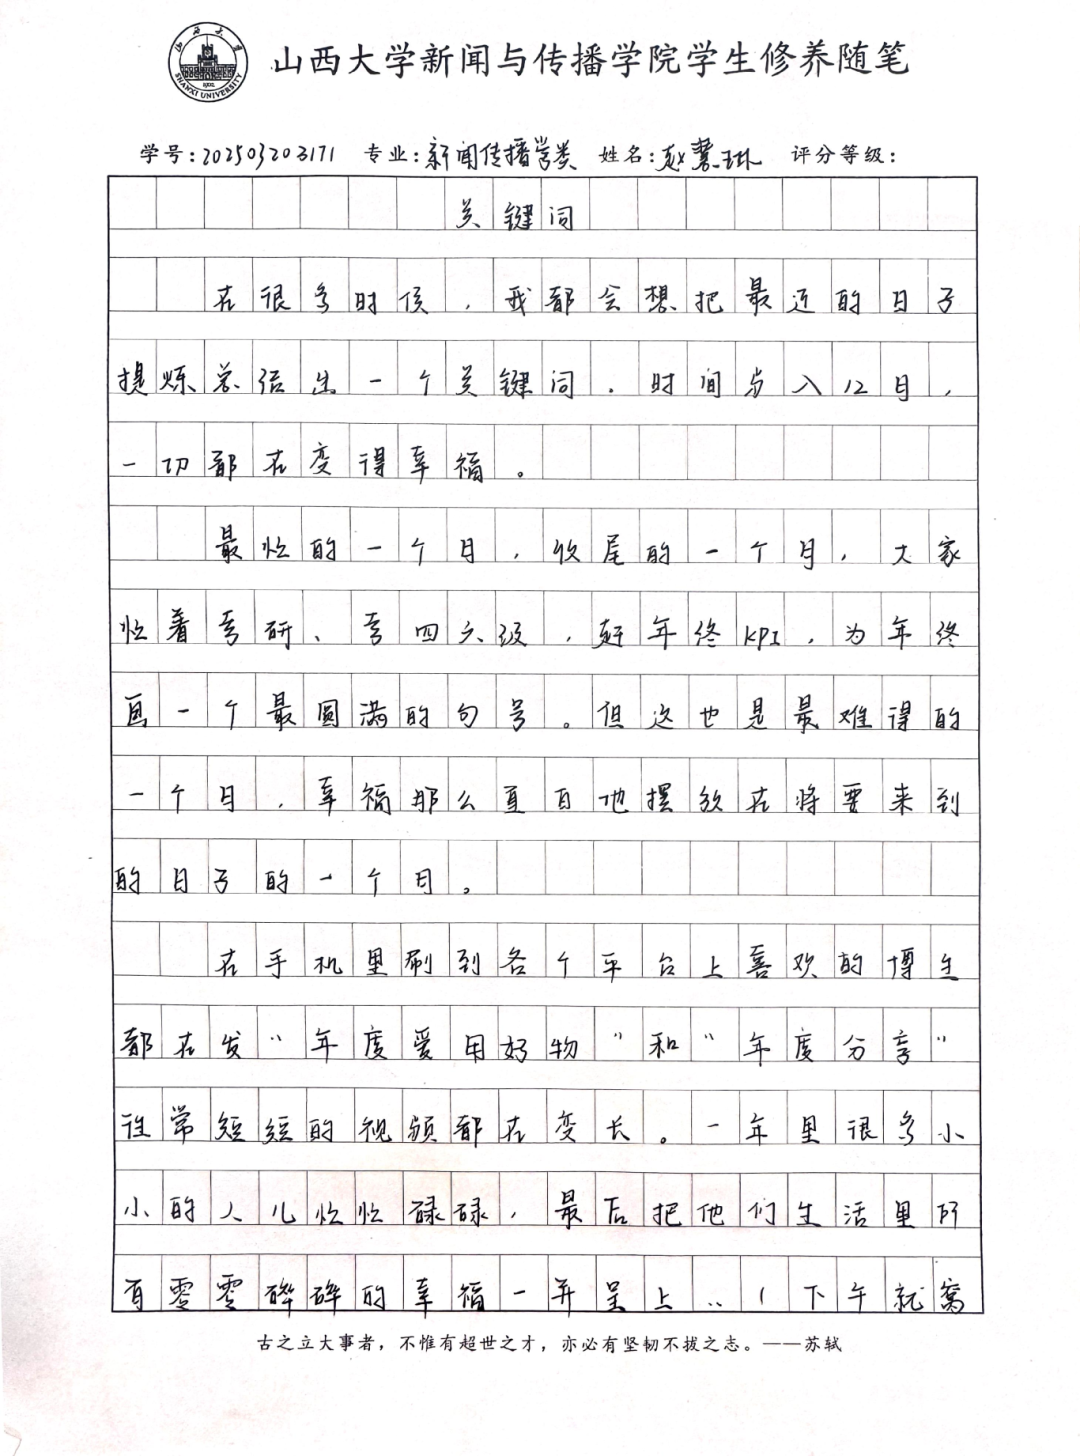 山西大学
SHANXI UNIVERSITY
1902
山西大学新闻与传播学院学生修养随笔
学号:202503203171 专业:新闻传播学类 姓名:赵慧琳 评分等级:
关键词
在很多时候,我都会想把最近的日子
提炼总结出一个关键词.时间步入12月,
一切都在变得幸福。
最忙的一个月,收尾的一个月,大家
忙着考研、考四六级,赶年终KPI,为年终
画一个最圆满的句号。但这也是最难得的
一个月,幸福那么直白地摆放在将要来到
的日子的一个月。
在手机里刷到各个平台上喜欢的博主
都在发"年度爱用好物"和"年度分享"
往常短短的视频都在变长。一年里很多小
小的人儿忙忙碌碌,最后把他们生活里所
有零零碎碎的幸福一并呈上..(下午就窝
古之立大事者,不惟有超世之才,亦必有坚韧不拔之志。——苏轼